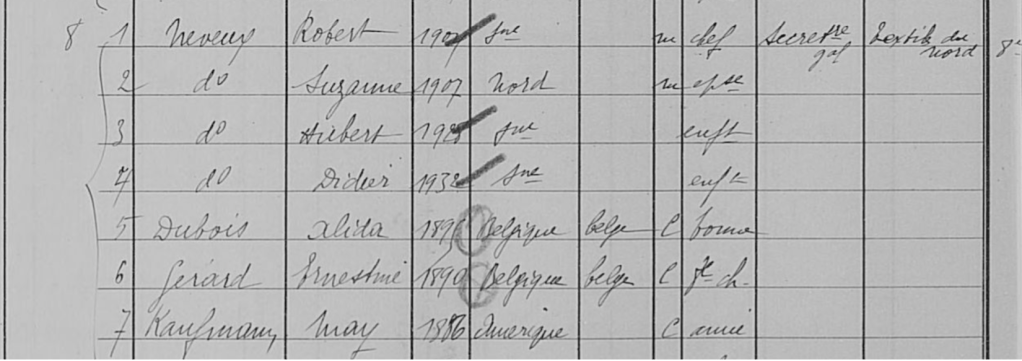 8 1 Neveux Robert 190 Sne m chef Secretre gal Textile du Nord 8e
2 do Suzanne 1907 Nord m epse
3 do Hubert 192 Sne enft
4 do Didier 1932 Sne enft
5 Dubois Alida 189 Belgique belge C bonne
6 Gérard Ernestine 1890 Belgique belge C fe ch.
7 Kaufmann May 1886 Amerique C amie